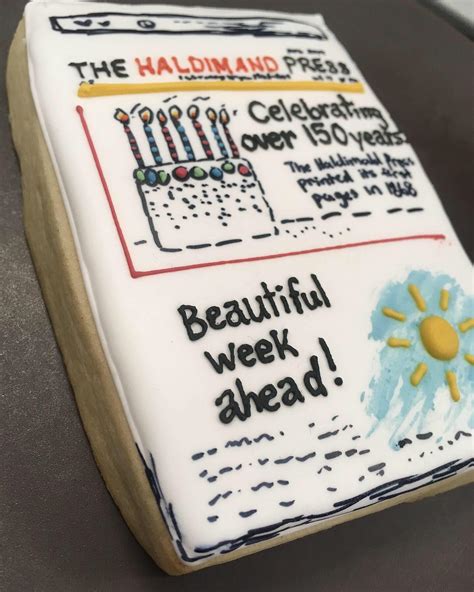 THE HALDIMAND PRESS
Celebrating
over 150 years.
The Haldimand Press
printed its first
pages in 1868
Beautiful
week
ahead!